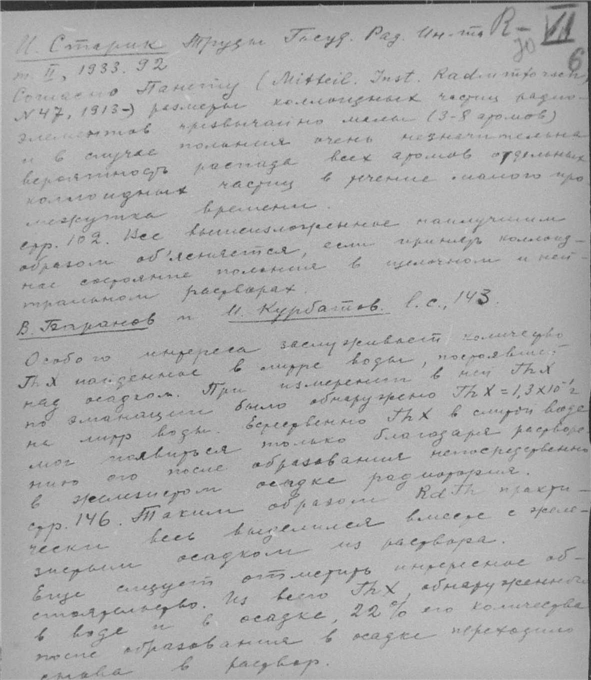 И. Старик Труды Госуд. Рад. Ин-та R- VII
т. II, 1933. 92 70 6
Согласно Панету (Mitteil. Inst. Radiumforsch,
N 47, 1913-) размеры коллоидных частиц радио-
элементов чрезвычайно малы (3-8 атомов)
и в случае полония очень незначительна
вероятность распада всех атомов отдельных
коллоидных частиц в течение малого про
межутка времени.
стр. 102. Все вышеизложенное наилучшим
образом об'ясняется, если принять коллоид-
ное состояние полония в щелочном и ней-
тральном растворах.
В. Баранов и И. Курбатов. l.c., 143.
Особого интереса заслуживает количество
ThX найденное в литре воды, постоявшей
над осадком. При измерении в ней ThX
по эманации было обнаружено ThX = 1,3x10
на литр воды. Естественно ThX в слитой воде
мог появиться только благодаря растворе
нию его после образования непосредственно
в железистом осадке радиотория.
стр. 146. Таким образом RdTh практи-
чески весь выделился вместе с желе-
зистым осадком из раствора.
Еще следует отметить интересное об-
стоятельство. Из всего ThX, обнаруженного
в воде и в осадке, 22% его количества
после образования в осадке переходило
снова в раствор.